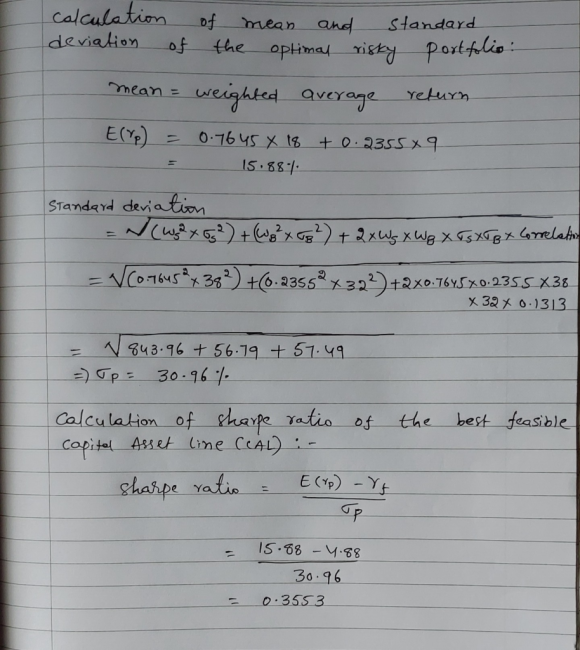 Calculation of mean and standard
deviation of the optimal risky portfolio:
mean = weighted average return
E(rp) = 0.7645 × 18 + 0.2355 × 9
= 15.88%
Standard deviation
= √(ws² × σs²) + (wB² × σB²) + 2×ws×wB×σs×σB× Correlation
= √(0.7645² × 38²) + (0.2355² × 32²) + 2×0.7645×0.2355×38
× 32 × 0.1313
= √843.96 + 56.79 + 57.49
=) σp = 30.96%
Calculation of sharpe ratio of the best feasible
Capital Asset line (CAL) :-
sharpe ratio = E(rp) - rf
σp
= 15.88 - 4.88
30.96
= 0.3553